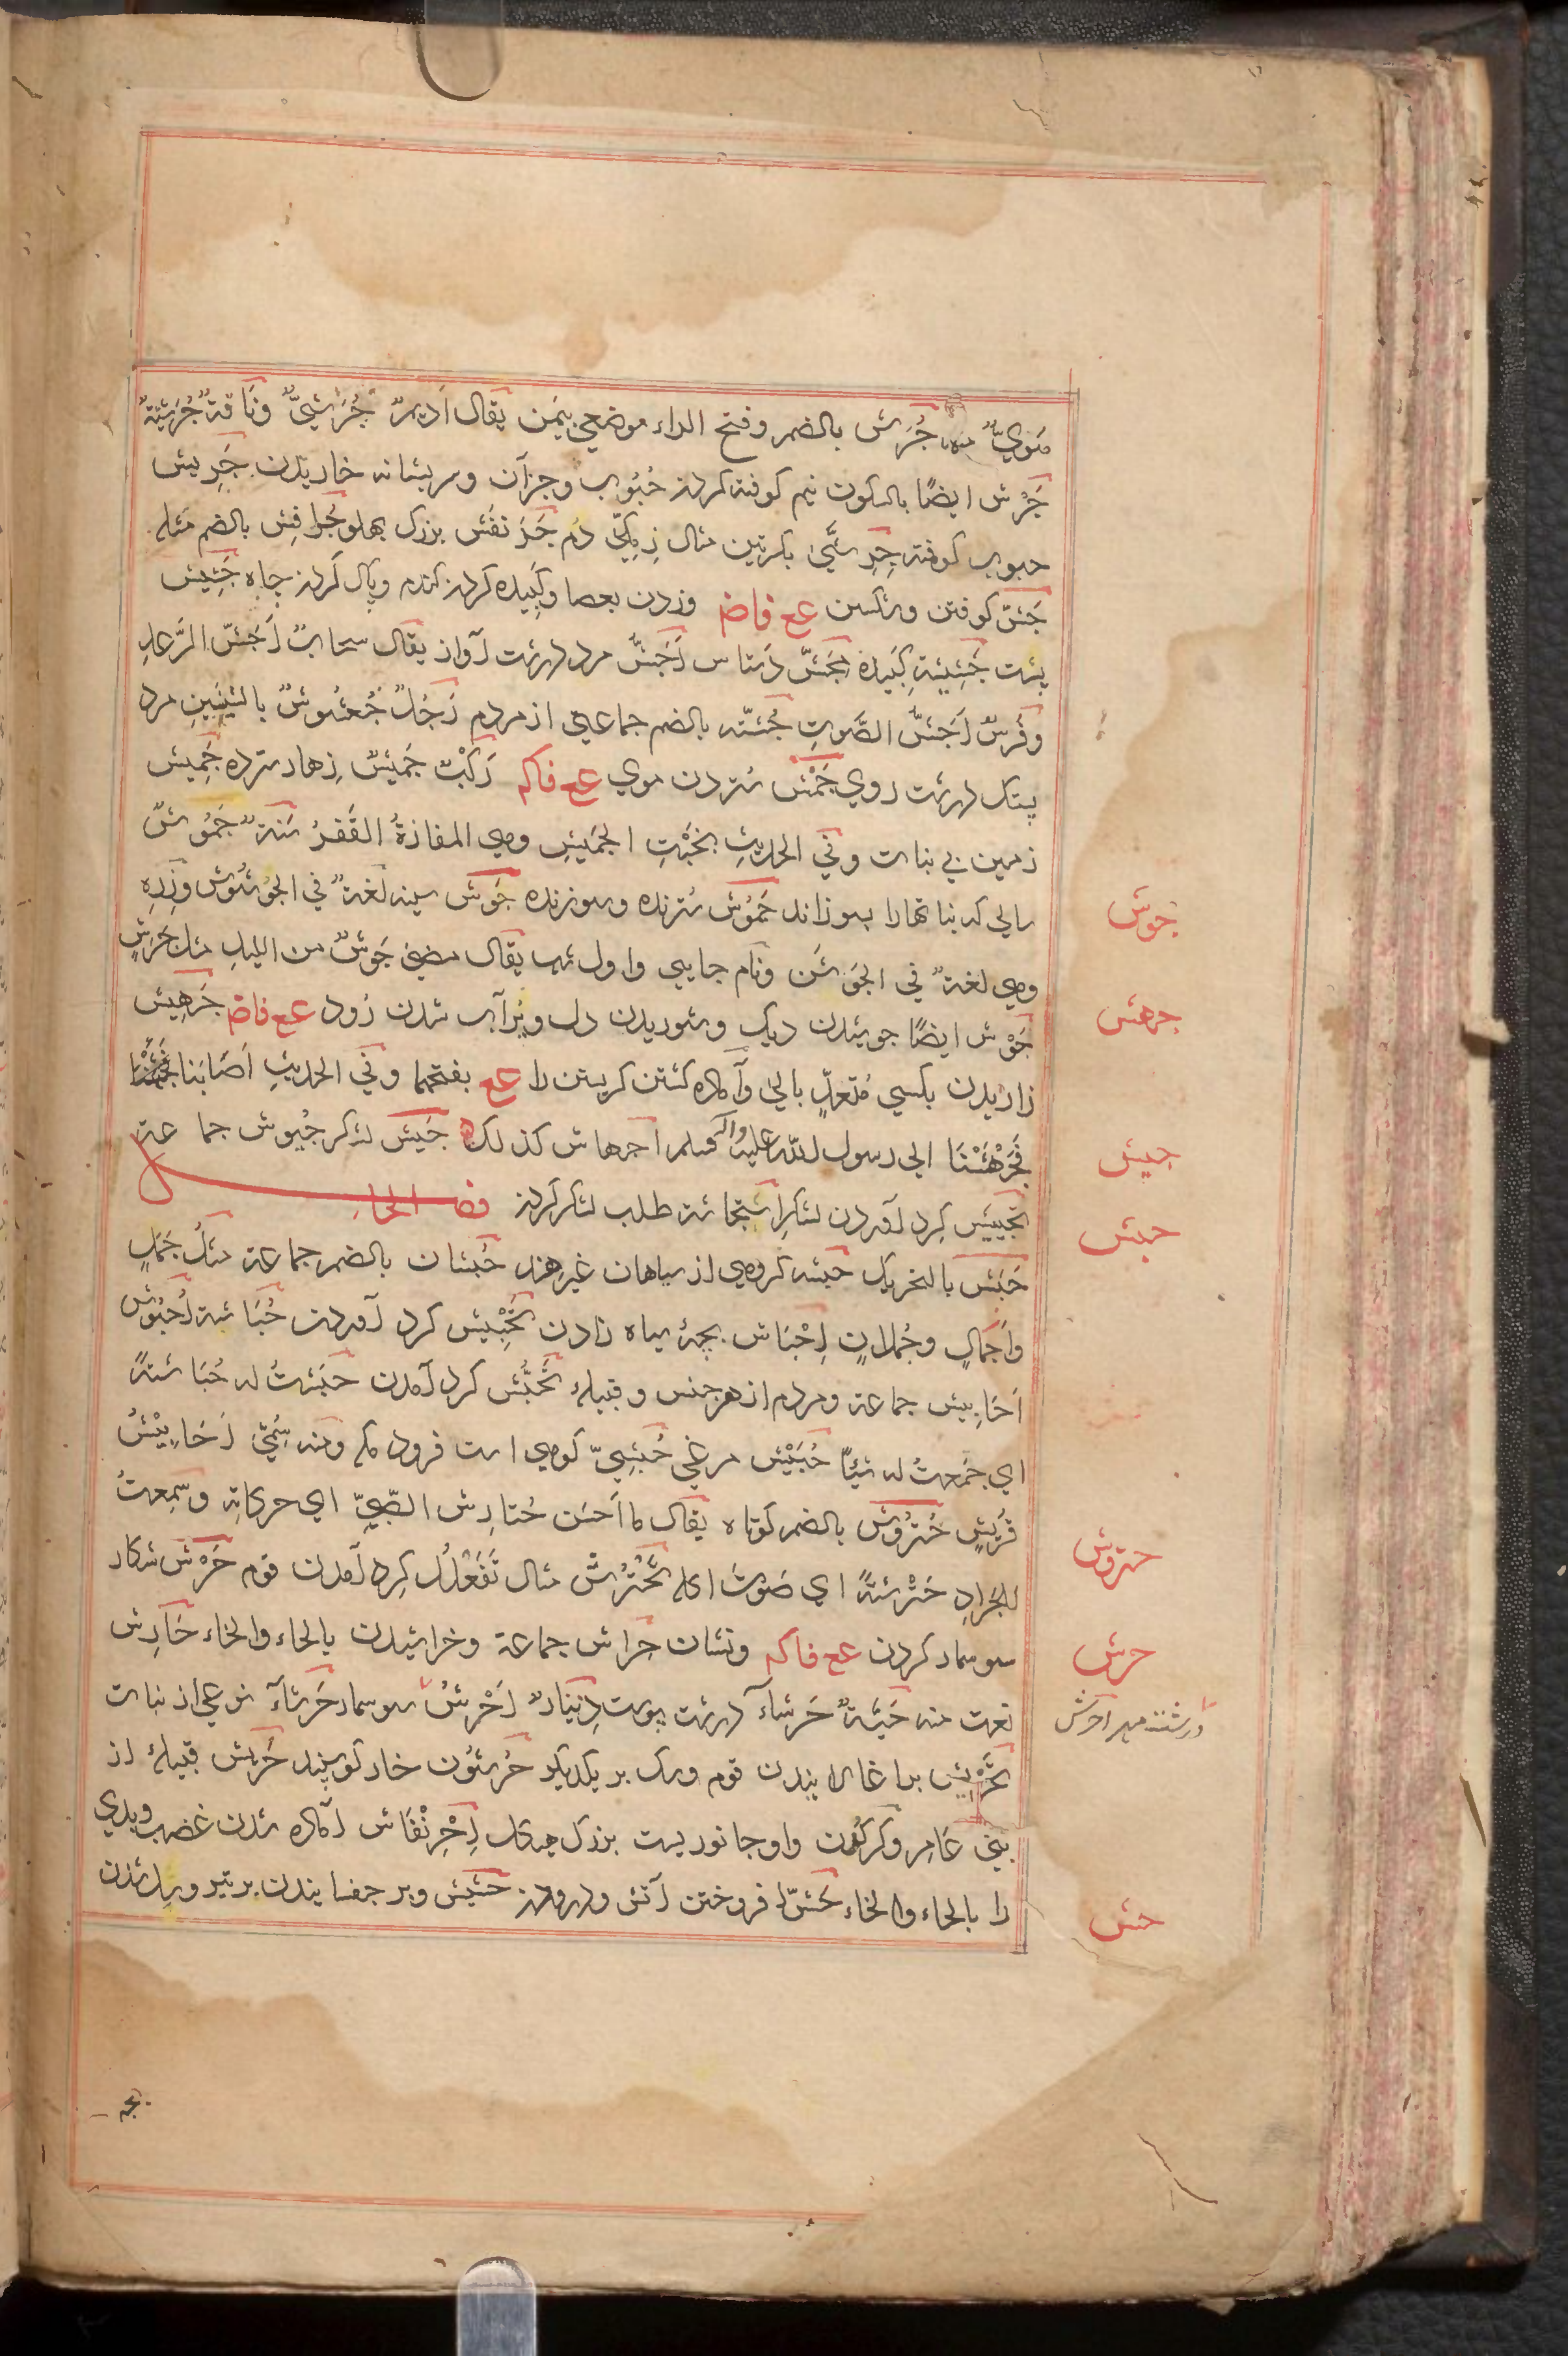 مَنويٌّ منه جُرَش بالضمر وفتح الراء موضعي بيَمَن يقال اَديمٌ جُرَشيٌّ وناقةٌ جُرَشيّةٌ
جَرْش ايضًا بالسكون نيم كوفته كردن حُبُوب وجزآن وسر بشانه خاريدن جَرِيش
حبوب كوفته جِرِشّىٰ بكسرتين مثال زِمِكّىٰ دم جَرَنفَش بزرك پهلو جُرافِش بالضم مثله
جَشّ كوفتن وشكستن عع فاض وزدن بعصا وكَبيده كردن كندم وپاك كردن چاه جَشِيش
پِسْت جَشِيشة كَبيده مِجَشّ دَستاس اَجَشّ مرد درشت آواز يقال سحابٌ اَجَشّ الرَّعدِ
وفَرسٌ اَجَشُّ الصَّوتِ جُشّه بالضم جماعتي از مردم رَجُلٌ جُعشُوشٌ بالشينَينِ مرد
پتك درشت روي جَمْش ستردن موي عع فاكم رَكَبٌ جَميشٌ زهار سترده جَمِيش
زمين بي نبات وفي الحديثِ بخَبْتِ الجَميشِ وهي المفازةُ القَفرُ سَنةٌ جَمُوشٌ
سالي كه نباتها را بسوزاند جَمُوش سترنده وسوزنده جَوش سينه لغةٌ في الجُؤشُوش وزِرِه
وهي لغةٌ في الجَوشَن ونام جايي واول شب يقال مضىٰ جَوشٌ من الليلِ مثل جَرَشٍ
جَوْش ايضًا جوشيدن ديك وشوريدن دل وپُرآب شدن رُود عع فاض جَرهِيش
زاريدن بكسي مُتعدٍّ بالىٰ وآماده كشتن كريستن را عع بفتحهما وفي الحديثِ اَصَابَنا عَطَشٌ
فَجَهَشْنَا الي رسول الله عليه وآله وسلم اجهاش كذلك جَيش لشكر جُيوش جماعة
تجييش كرد آوردن لشكر اِستجاشة طلب لشكر كردن فصل الحاء
حَبَش بالتحريك حَبشه كروهي از سياهان غير هند حُبشان بالضمر جماعة مثل جَمَلٍ
واَجمالٍ وجُملانٍ اِحْبَاش بچهٔ سياه زادن تَحْبِيش كرد آوردن حُبَاشة اُحبُوش
اَحَابِيش جماعة ومردم از هرجنس وقبيلهٔ تَحَبُّش كرد آمدن حَبَشتُ له حُبَاشةً
اي جَمعتُ له شيئًا حُبَيْش مرغي حُبشِيّ كوهي است فرود مكه ومنه سُمّىَ اَحَابِيْشُ
قُرَيشٍ حُترُوش بالضمر كوتاه يقال ما اَحسَن حَتارِش الصَّبيِّ اي حركاتِه وسَمِعتُ
للجَرادِ حَتْرَشةً اي صَوتَ اكله تَحَتْرُش مثال تَفَعْلُل كِرد آمدن قوم حَرْش شكار
سوسمار كردن عع فاكم ونشان حِراش جماعة وخراشيدن بالحاء والخاء حَارِش
نعت منه حَيّةٌ حَرشآء درشت پوست دِينَارٌ اَحْرَشُ سوسمار حَرشآء نوعي از نبات
تَحْرِيش براغالانيدن قوم وسك بر يكديكر حُرشُون خار كوسپند حَرِيش قبيلهٔ از
بني عَامِر وكركدن واو جانوريست بزرك هيكل اِحْرِنْفَاش آماده شدن غضب وبدي
را بالحاء والخاء حَشّ افروختن آتش ودرودن حَشيش وبر جفسانيدن بر تير وپر شدن
جوش
جرهش
جيش
حبش
حتروش
حرش
حش